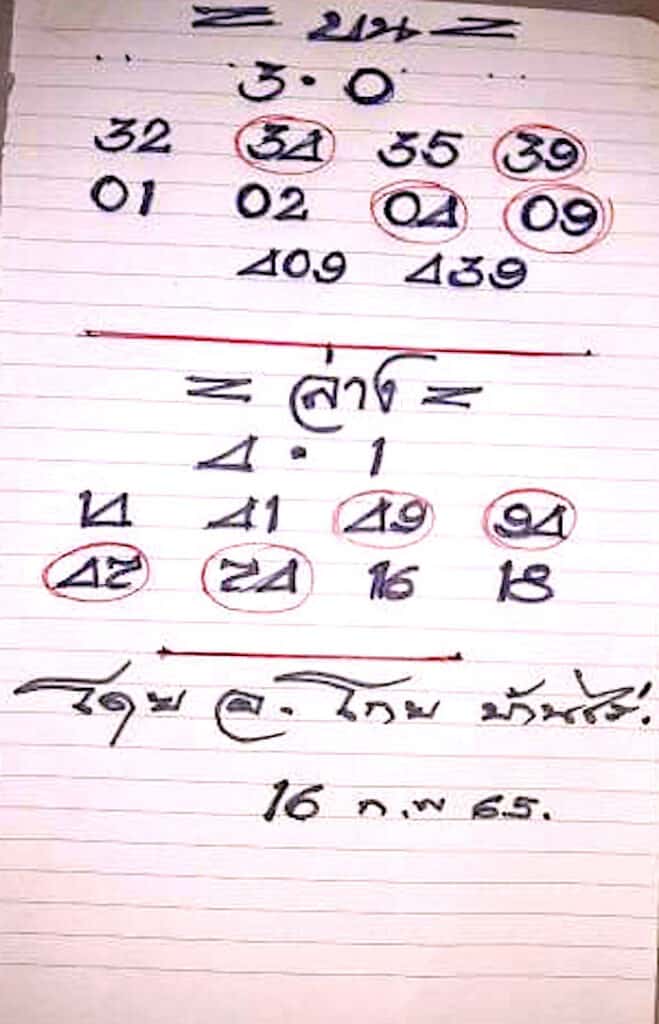 = บน =
3 · 0
32 34 35 39
01 02 04 09
409 439
= ล่าง =
4 · 1
14 41 49 94
47 74 16 18
โดย อ. โกย บ้านไร่.
16 ก.พ 65.